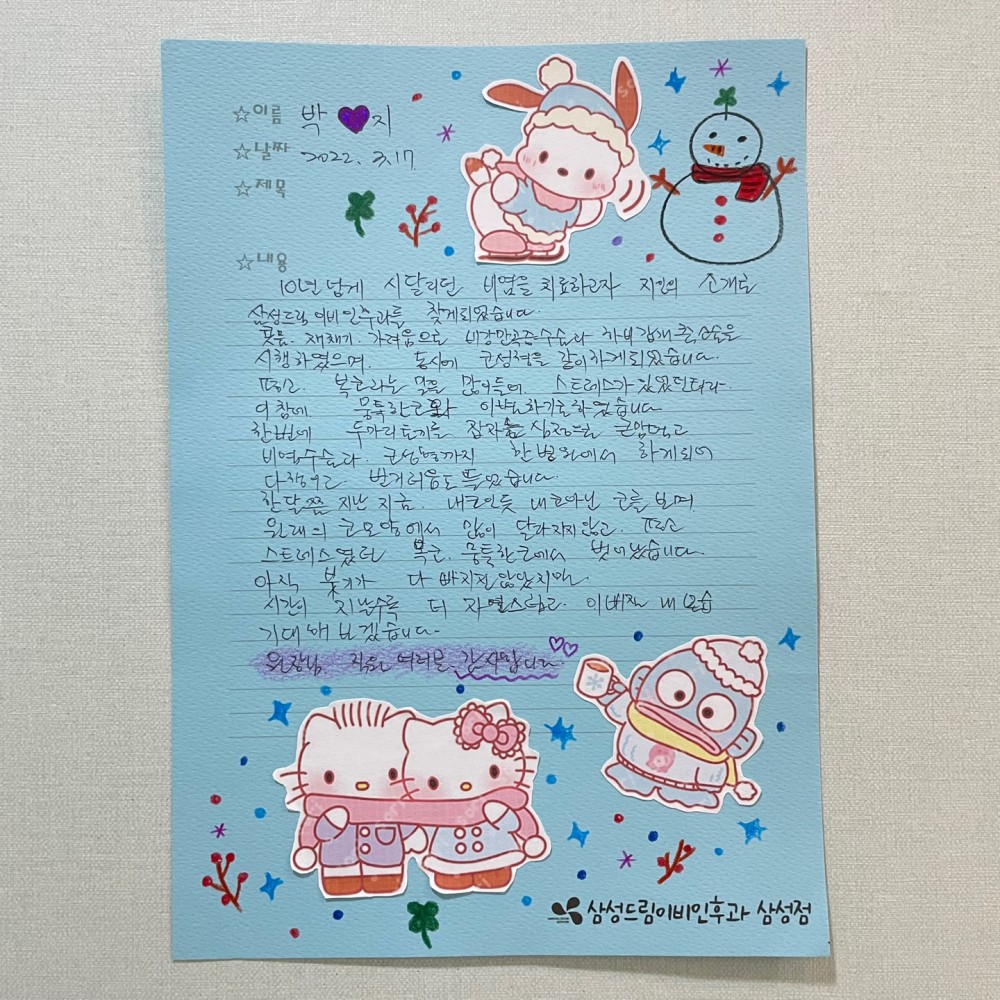 ☆이름 박 💜지
☆날짜 2022. 3.17
☆제목
☆내용
10년 넘게 시달리던 비염을 치료하고자 지인의 소개로
삼성드림이비인후과를 찾게되었습니다.
콧물. 재채기. 가려움으로 비강만곡증수술과 하비갑개 축소술을
시행하였으며. 동시에 코성형을 같이하게되었습니다.
평소. 복코라는 말을 많이들어. 스트레스가 있었던터라.
이참에 뭉툭한코와 이별하기로하였습니다
한번에 두마리토끼를 잡자는 심정으로 큰맘먹고
비염수술과. 코성형까지 한 병원에서 하게되어
다행이고. 번거러움도 덜었습니다.
한달쯤 지난 지금. 내코인듯 내코아닌 코를 보며
원래의 코모양에서 많이 달라지지않고. 평소
스트레스였던 복코. 뭉툭한코에서 벗어났습니다.
아직 붓기가 다 빠지진 않았지만
시간이 지날수록 더 자연스럽고. 이뻐질 내 모습
기대해 보겠습니다.
원장님 직원 여러분. 감사합니다
삼성드림이비인후과 삼성점